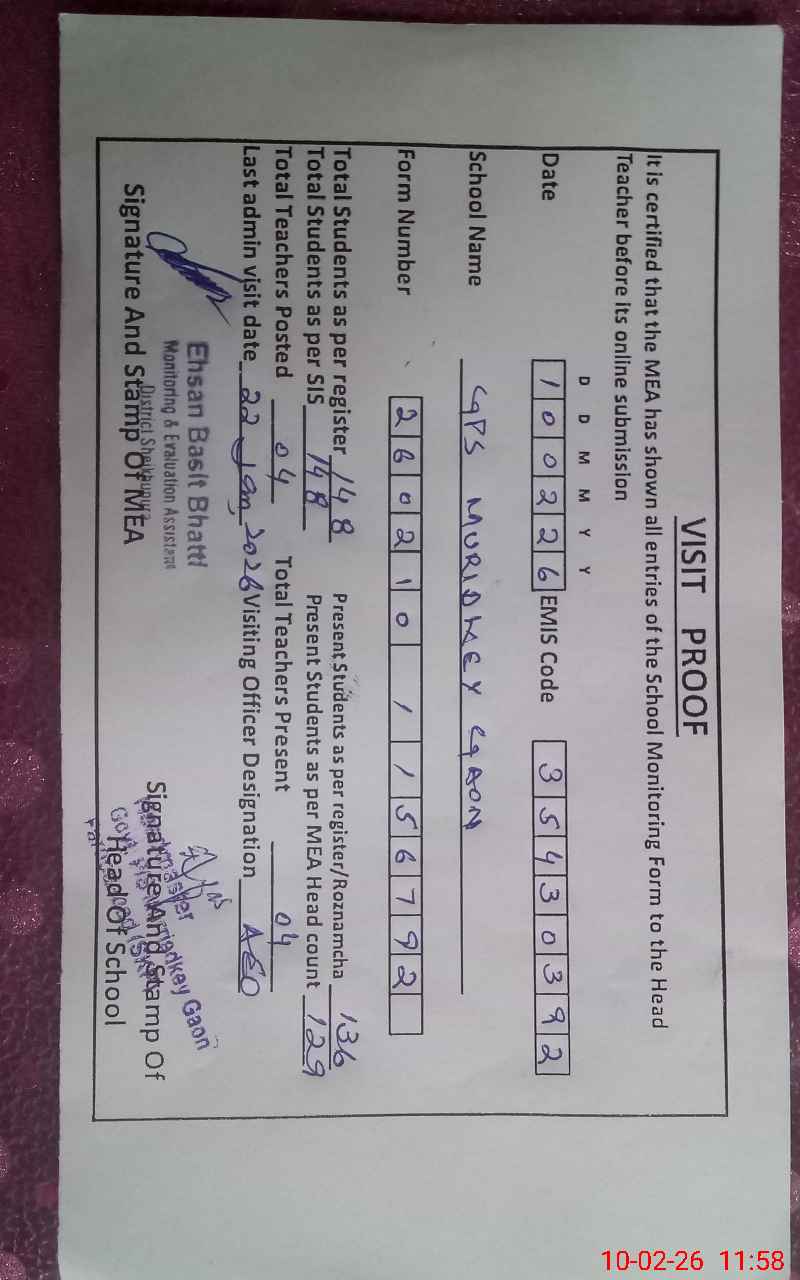 VISIT PROOF
It is certified that the MEA has shown all entries of the School Monitoring Form to the Head
Teacher before its online submission
D D M M Y Y
Date 100226 EMIS Code 35430392
School Name GPS MURIDKEY GAON
Form Number 260210 1 1 56792
Total Students as per register 148 Present Students as per register/Roznamcha 136
Total Students as per SIS 148 Present Students as per MEA Head count 129
Total Teachers Posted 04 Total Teachers Present 04
Last admin visit date 22 Jan, 2026 Visiting Officer Designation AEO
Ehsan Basit Bhatti
Monitoring & Evaluation Assistant
District Sheikhupura
Signature And Stamp Of MEA
Headmaster
Govt. Muridkey Gaon
Signature And Stamp Of
Head Of School
10-02-26 11:58